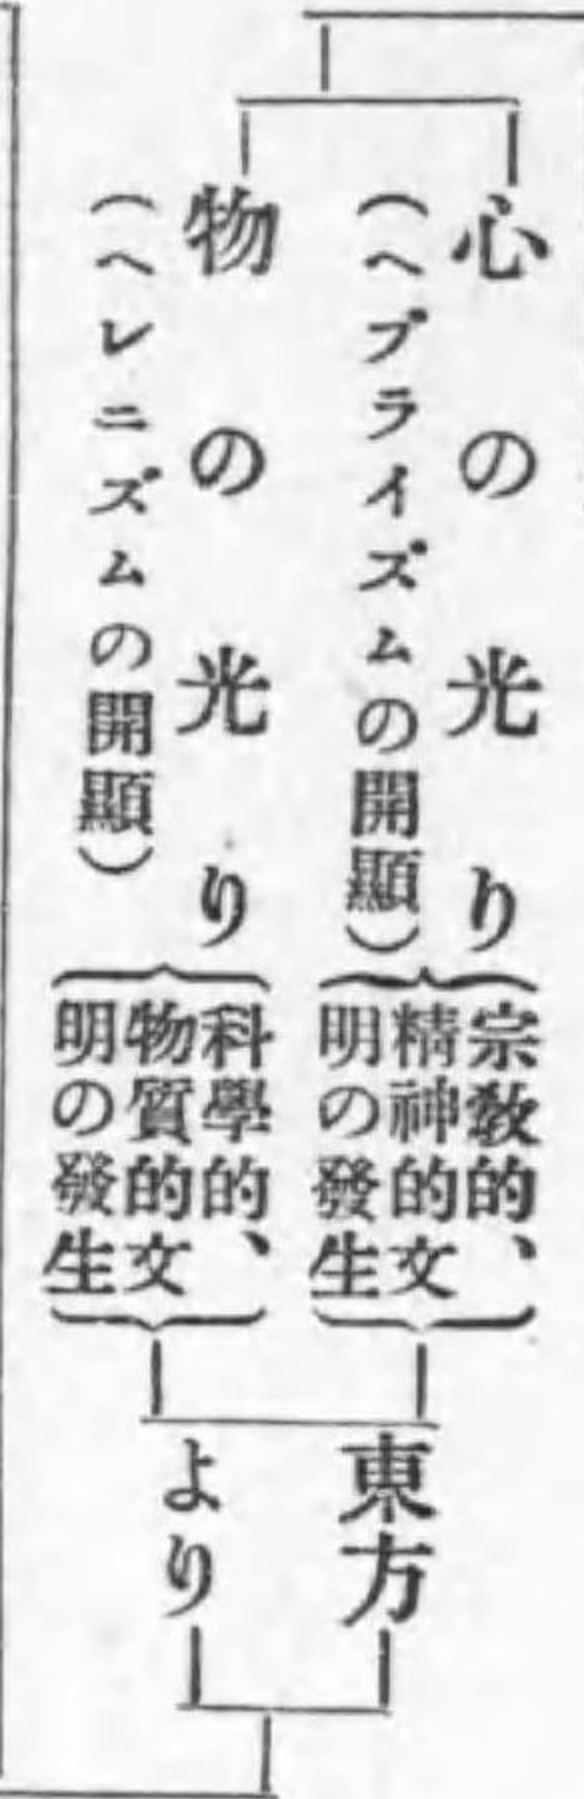 心の光り
(ヘブライズムの開顯)
宗教的、
精神的文
明の發生
物の光り
(ヘレニズムの開顯)
科學的、
物質的文
明の發生
東方
より